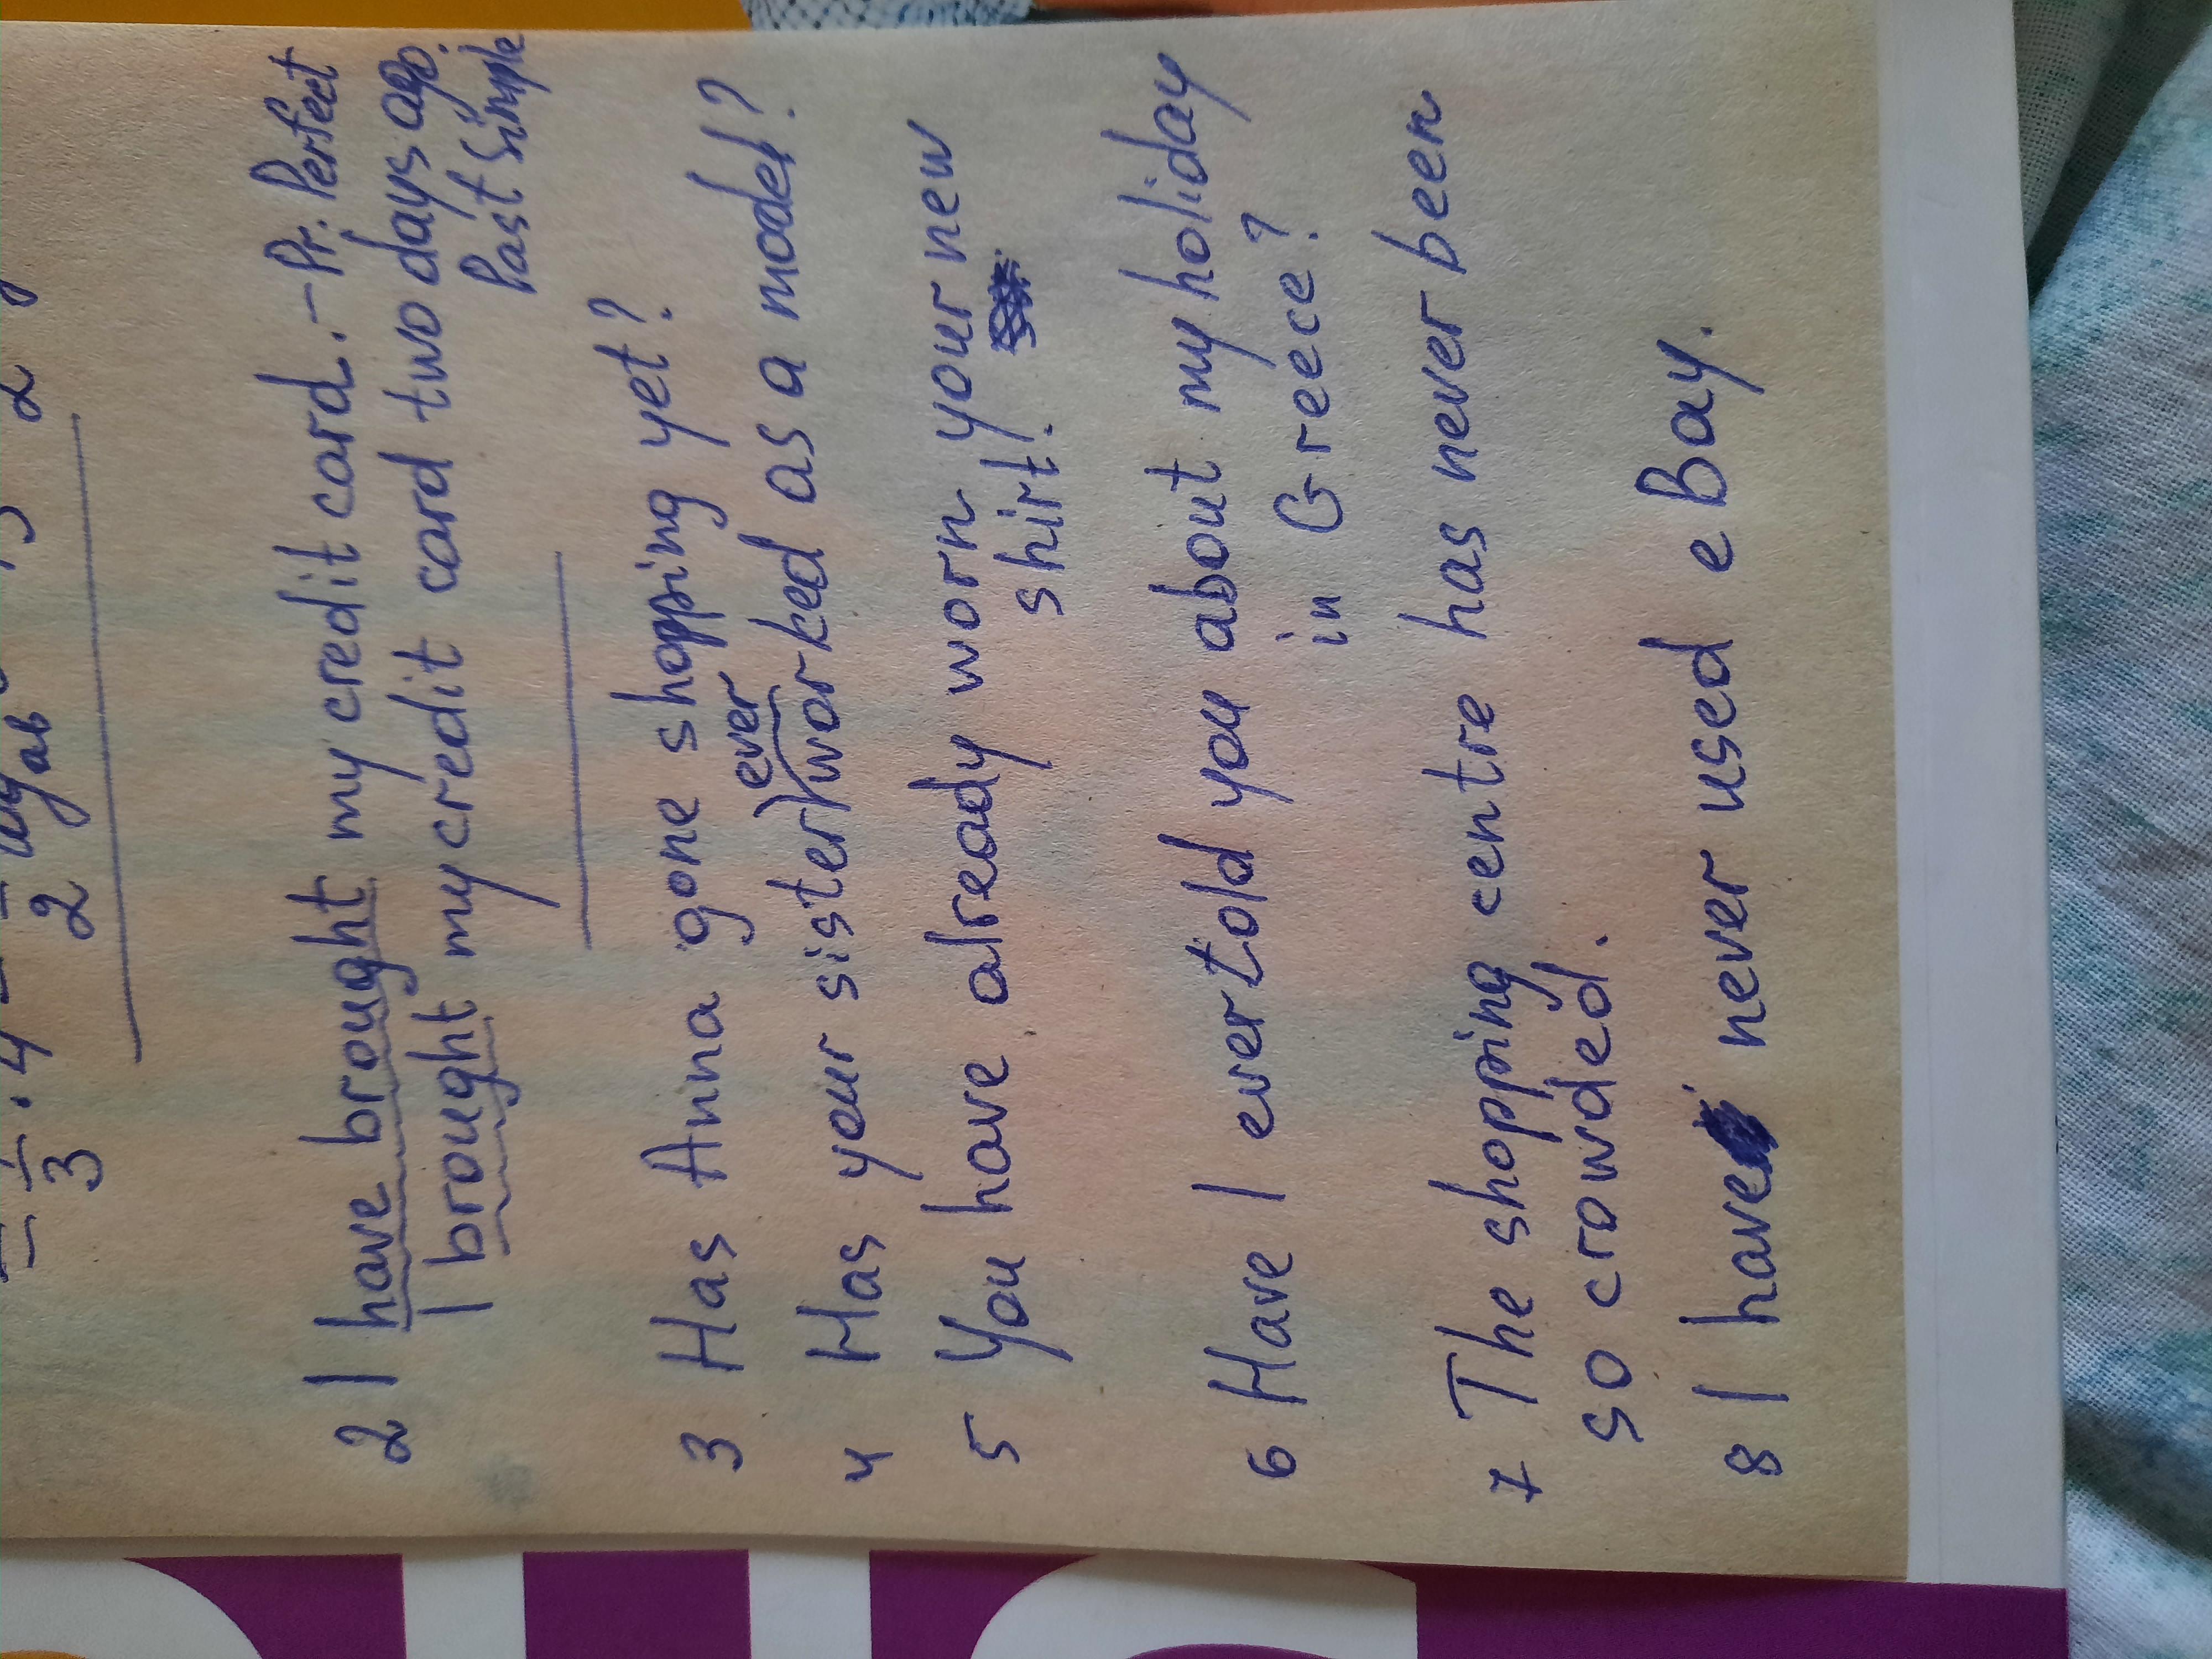 = 1/3 · 4
2
2 I have brought my credit card. - Pr. Perfect
I brought my credit card two days ago.
Past Simple
3 Has Anna gone shopping yet?
ever
4 Has your sister worked as a model?
5 You have already worn your new
shirt!
6 Have I ever told you about my holiday
in Greece?
7 The shopping centre has never been
so crowded.
8 I have never used eBay.